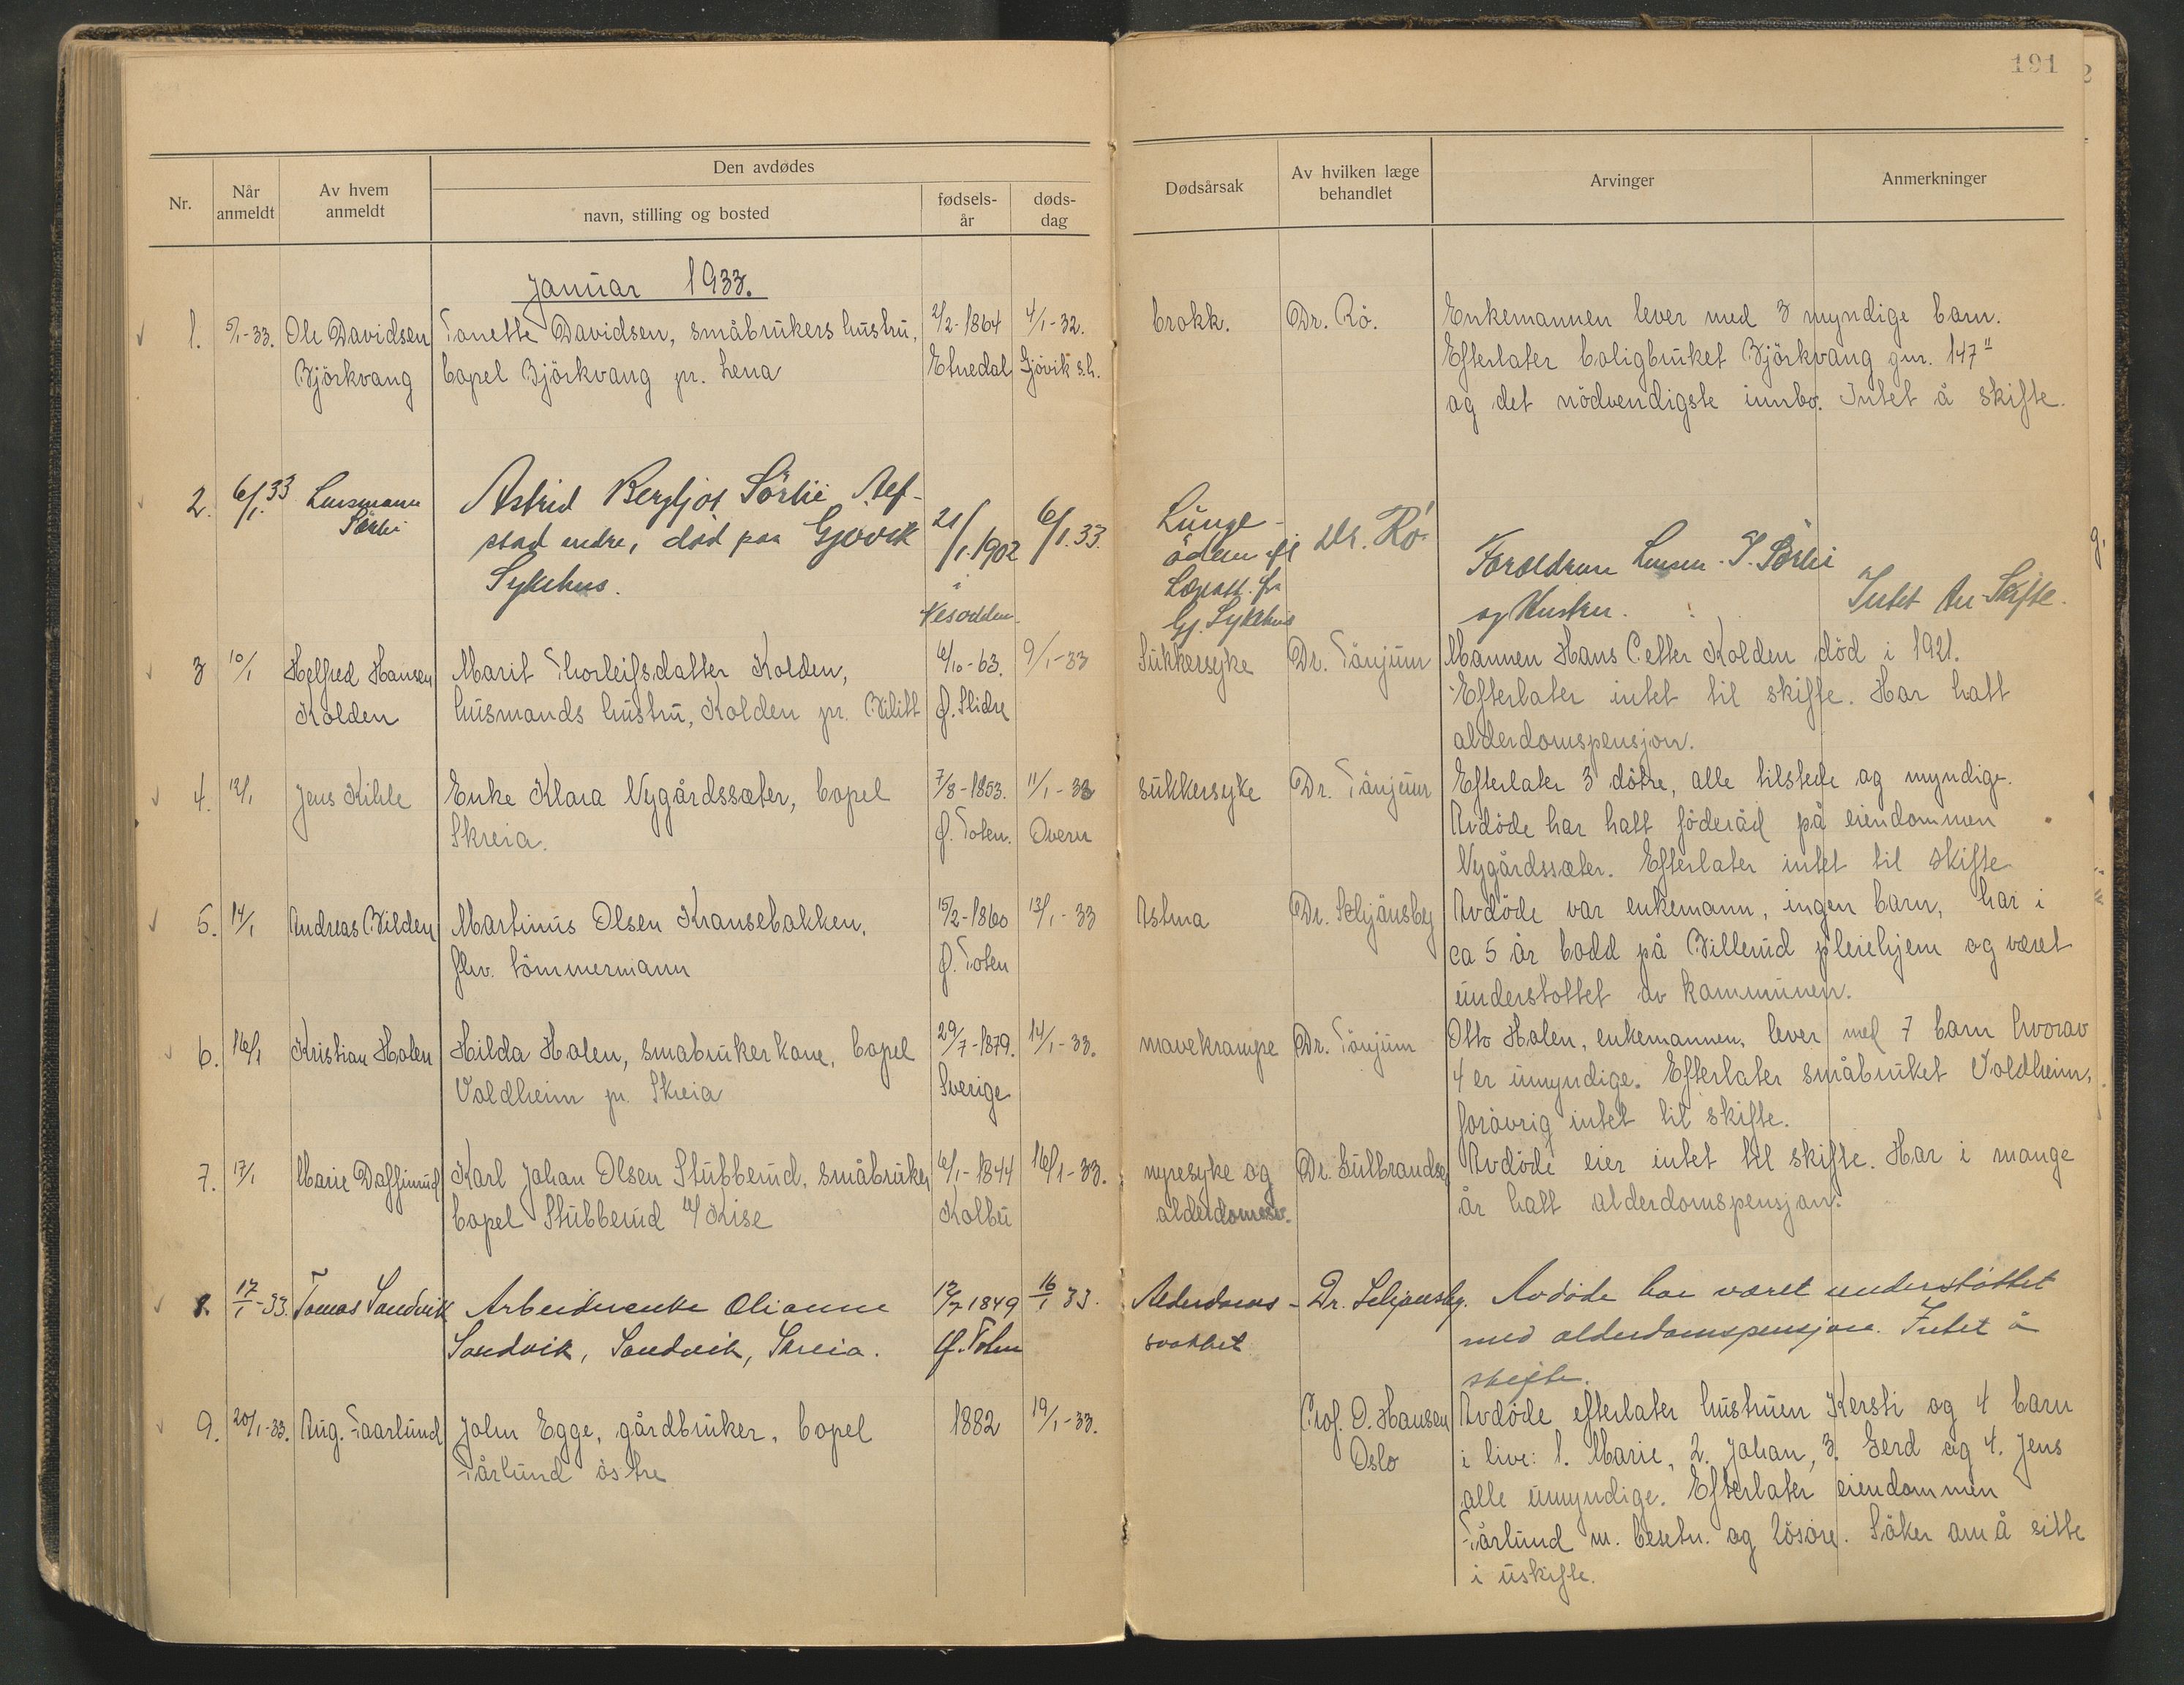 191
Nr.
Når anmeldt
Av hvem anmeldt
Den avdødes
navn, stilling og bosted
fødsels-år
døds-dag
Dødsårsak
Av hvilken læge behandlet
Arvinger
Anmerkninger
Januar 1933.
1. 5/1-33. Ole Davidsen Tonette Davidsen, småbrukers hustru, 2/2-1864 4/1-32. brokk. Dr. Rö. Enkemannen lever med 3 myndige barn.
Björkvang bopel Björkvang pr. Lena Etnedal Gjövik s.h. Efterlater boligbruket Björkvang gnr. 147"
og det nödvendigste innbo. Intet å skifte.
2. 6/1.33 Lensmann Astrid Bergljot Sörlie, Alf-
Sörlie stad endre, död paa Gjøvik 21/1.1902 6/1.33. Lunge-
Sykehus. i Nesodden. Dr. Rö
Foreldrene Lensm. Sörlie
og Hustru. Intet Au Skifte.
Gj. Sykehus
3 10/1 Helfred Hansen Marit Thorleifsdatter Kolden, 6/10-63. 9/1-33 Sukkersyke Dr. Tönjum Mannen Hans Petter Kolden död i 1921.
Kolden husmands hustru, Kolden pr. Bilitt Ø. Slidre Efterlater intet til skifte. Har hatt
alderdomspensjon.
4. 12/1 Jens Kihle Enke Klara Nygårdssæter, bopel 7/8-1853. 11/1-33 sukkersyke Dr. Tönjum Efterlater 3 dötre, alle tilstede og myndige.
Skreia. Ø. Toten. Overn Avdöde har hatt föderåd på eiendommen
Nygårdssæter. Efterlater intet til skifte
5. 14/1 Andreas Vilden Martinus Olsen Kransebakken, 15/2-1860 13/1-33 Astma Dr. Schjänsby Avdöde var enkemann, ingen barn, har i
fhv. tömmermann Ø. Toten ca 5 år bodd på Billerud pleiehjem og været
understottet av kommunen.
6. 16/1 Kristian Holen Hilda Holen, smabrukerkone, bopel 29/7-1879. 14/1-33. mavekrampe Dr. Tönjum Otto Holen, enkemannen, lever med 7 barn hvorav
Voldheim pr. Skreia Sverige 4 er umyndige. Efterlater småbruket Voldheim,
forövrig intet til skifte.
7. 17/1 Marie Daffinrud Karl Johan Olsen Stubberud, småbruker 6/1-1844 16/1-33. nyresyke og Dr. Gulbrandsen Avdöde eier intet til skifte. Har i mange
bopel Stubberud u/Kise Kolbu alderdomssv. år hatt alderdomspensjon.
8. 17/1-33. Tomas Sandvik Arbeiderenke Olianne 12/7 1849 16/1 33. Alderdoms- Dr. Schjansby. Avdöde har været understöttet
Sandvik, Sandvik, Skreia. Ø. Toten svakhet med alderdomspensjon. Intet å
skifte.
9. 20/1-33. Aug. Taarlund John Egge, gårdbruker, bopel 1882 19/1-33. Prof. O. Hansen Avdöde efterlater hustruen Kersti og 4 barn
Tårlund östre Oslo i live: 1. Marie, 2. Johan, 3. Gerd og 4. Jens
alle umyndige. Efterlater eiendommen
Tårlund m. besetn. og lösöre. Söker om å sitte
i uskifte.